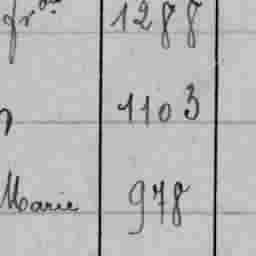 1288
1103
Marie 978